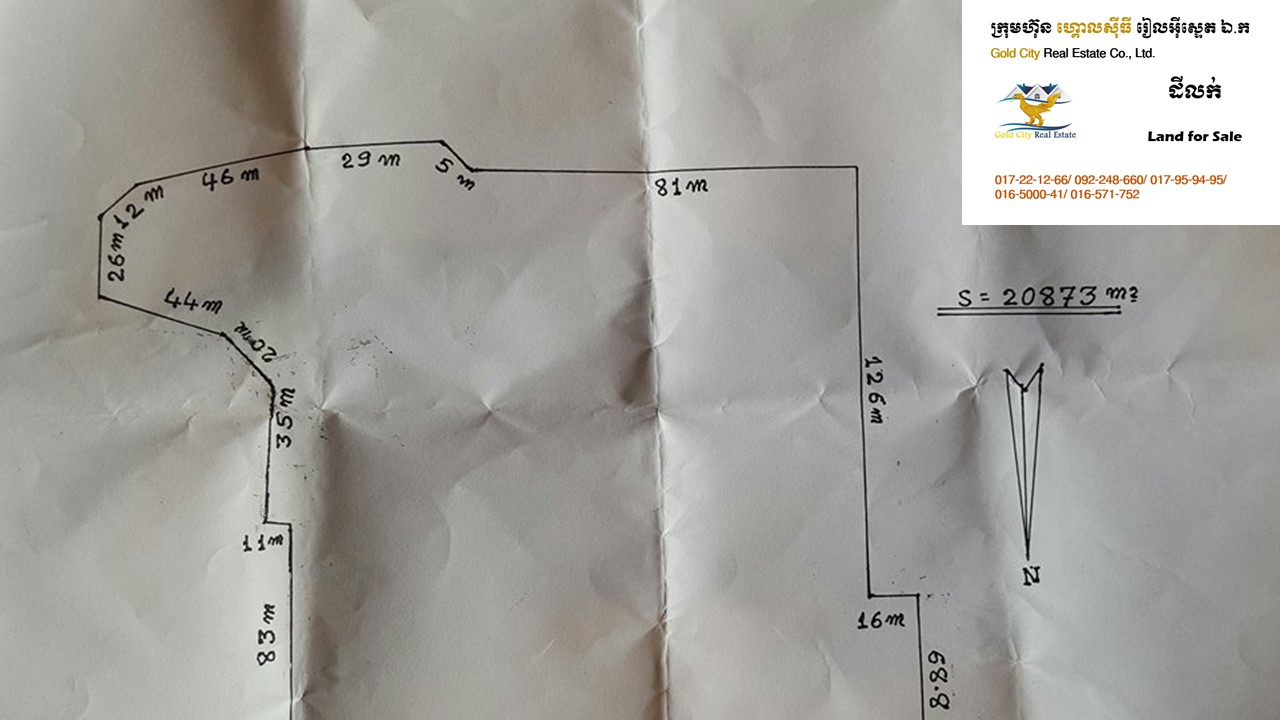 ក្រុមហ៊ុន ហ្គោលស៊ីធី រៀលអ៊ីស្ទេត ឯ.ក
Gold City Real Estate Co., Ltd.
ដីលក់
Gold City Real Estate
Land for Sale
017-22-12-66/ 092-248-660/ 017-95-94-95/
016-5000-41/ 016-571-752
29 m
5 m
46 m
81 m
12 m
26 m
44 m
S = 20873 m²
20 m
126 m
35 m
11 m
N
16 m
83 m
68.8